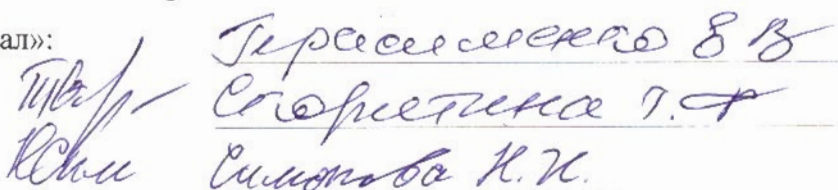 ал»:
Герасименко Е В
Скорятина Т. Ф
Симонова Н. Н.